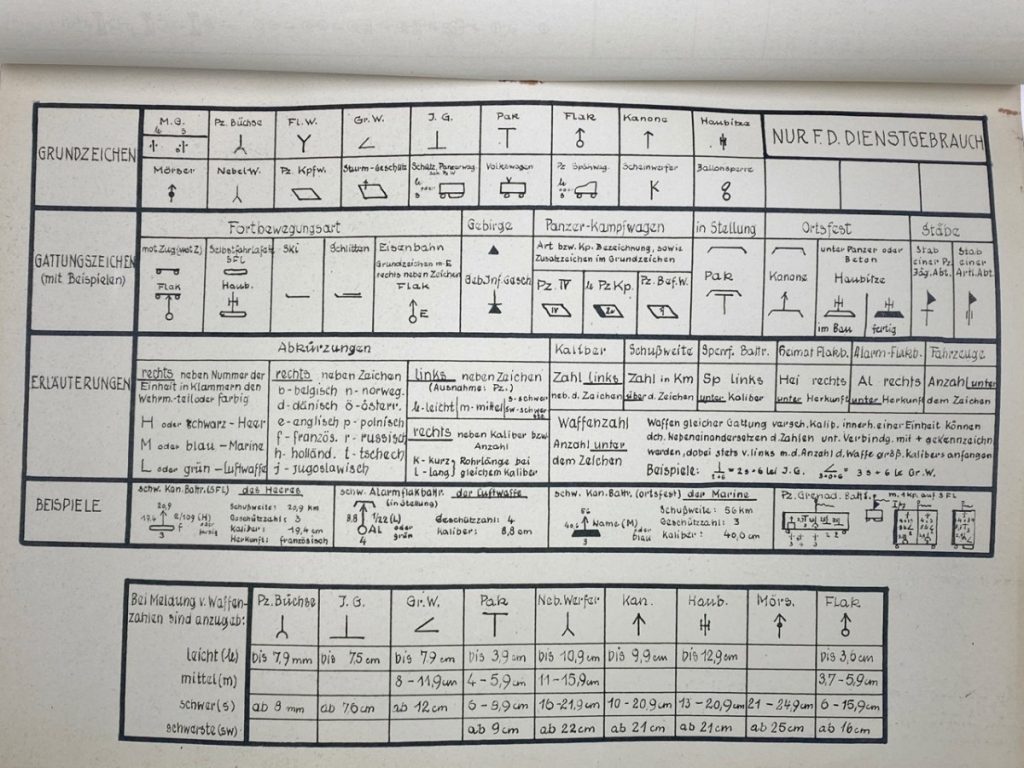 GRUNDZEICHEN
M.G.
Pz. Büchse
Fl.W.
Gr.W.
J.G.
Pak
Flak
Kanone
Haubitze
NUR F.D. DIENSTGEBRAUCH
Mörser
Nebel W.
Pz. Kpfw.
Sturm-Geschütz
Schütz. Panzerwag.
Volkswagen
Pz. Spähwag.
Scheinwerfer
Ballonsperre
GATTUNGSZEICHEN
(mit Beispielen)
Fortbewegungsart
Gebirge
Panzer-Kampfwagen
in Stellung
Ortsfest
Stäbe
mot.Zug (mot Z)
Flak
Selbstfahrlafett.
SFL
Haub.
Ski
Schlitten
Eisenbahn
Grundzeichen m. E
rechts neben Zeichen
Flak
E
Geb.Inf.Gesch.
Art bzw. Kp. Bezeichnung, sowie
Zusatzzeichen im Grundzeichen
Pz. IV
le Pz Kp.
Pz. Bef. W.
Pak
Kanone
unter Panzer oder
Beton
Haubitze
im Bau
fertig
Stab
einer Pz.
Jäg. Abt.
Stab
einer
Arti. Abt.
ERLÄUTERUNGEN
Abkürzungen
rechts neben Nummer der
Einheit in Klammern den
Wehrm.-teil oder farbig
H oder schwarz - Heer
M oder blau - Marine
L oder grün - Luftwaffe
rechts neben Zeichen
b - belgisch n - norweg.
d - dänisch ö - österr.
e - englisch p - polnisch
f - französ. r - russisch
h - holländ. t - tschech
j - jugoslawisch
links neben Zeichen
(Ausnahme: Pz.)
le-leicht m-mittel s-schwer
rechts neben Kaliber bzw
Anzahl
K - kurz Rohrlänge bei
L - lang gleichem Kaliber
Kaliber
Schußweite
Sperrf. Battr.
Heimat Flakb.
Alarm-Flakb.
Fahrzeuge
Zahl links
neb. d. Zeichen
Zahl in Km
über d. Zeichen
Sp links
unter Kaliber
Hei rechts
unter Herkunft
Al rechts
unter Herkunft
Anzahl unter
dem Zeichen
Waffenzahl
Anzahl unter
dem Zeichen
Waffen gleicher Gattung versch. Kalib. innerh. einer Einheit können
dch. Nebeneinandersetzen d. Zahlen unt. Verbindg. mit + gekennzeichn
werden, dabei stets v. links m. d. Anzahl d. Waffe größ. Kalibers anfangen
Beispiele: = 2 s + 6 le J.G. = 3 s + 6 le Gr.W.
BEISPIELE
schw. Kan. Battr. (SFL) des Heeres
20,9
19,4
f
3
Schußweite: 20,9 km
Geschützzahl: 3
Kaliber: 19,4 cm
Herkunft: französisch
schw. Alarmflakbattr. der Luftwaffe
(in Stellung)
8,8
1/22 (L)
oder
grün
AL
4
Geschützzahl: 4
Kaliber: 8,8 cm
schw. Kan. Battr. (ortsfest) der Marine
56
40,6
Name (M)
oder
blau
3
Schußweite: 56 km
Geschützzahl: 3
Kaliber: 40,0 cm
Pz. Grenad. Batls.
m. 1 Kp. auf SFL
Bei Meldung v. Waffen-
zahlen sind anzugeb:
Pz. Büchse
J.G.
Gr.W.
Pak
Neb. Werfer
Kan.
Haub.
Mörs.
Flak
leicht (le) bis 7,9 mm bis 7,5 cm bis 7,9 cm bis 3,9 cm bis 10,9 cm bis 9,9 cm bis 12,9 cm bis 3,6 cm
mittel (m) 8 - 11,9 cm 4 - 5,9 cm 11 - 15,9 cm 3,7 - 5,9 cm
schwer (s) ab 8 mm ab 7,6 cm ab 12 cm 6 - 8,9 cm 16 - 21,9 cm 10 - 20,9 cm 13 - 20,9 cm 21 - 24,9 cm 6 - 15,9 cm
schwerste (sw) ab 9 cm ab 22 cm ab 21 cm ab 21 cm ab 25 cm ab 16 cm